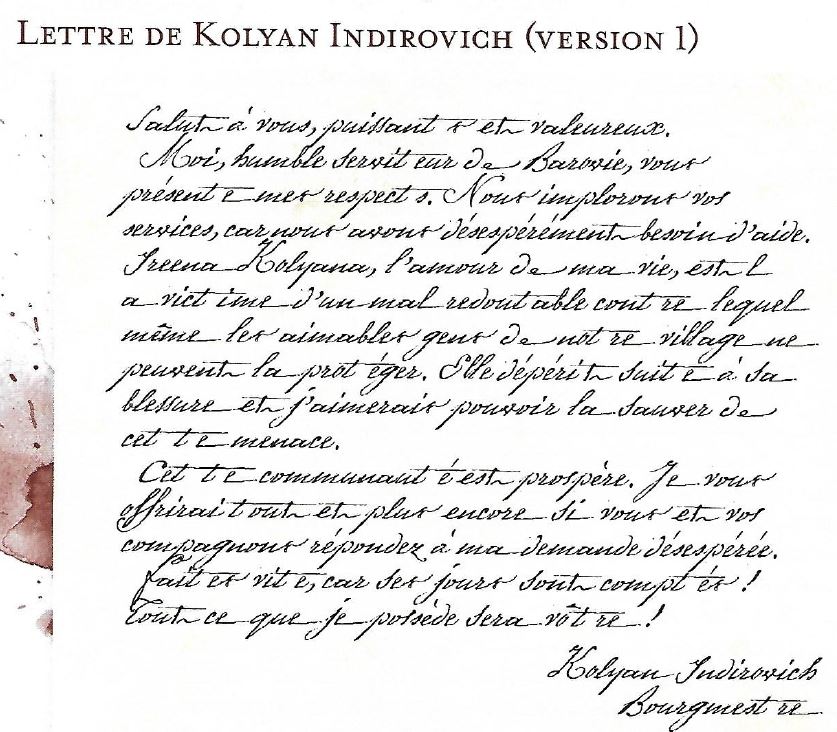 Lettre de Kolyan Indirovich (version 1)
Salut à vous, puissants et valeureux.
Moi, humble serviteur de Barovie, vous
présente mes respects. Nous implorons vos
services, car nous avons désespérément besoin d'aide.
Ireena Kolyana, l'amour de ma vie, est l
a victime d'un mal redoutable contre lequel
même les aimables gens de notre village ne
peuvent la protéger. Elle dépérit suite à sa
blessure et j'aimerais pouvoir la sauver de
cette menace.
Cette communauté est prospère. Je vous
offrirai tout et plus encore si vous et vos
compagnons répondez à ma demande désespérée.
Faites vite, car ses jours sont comptés !
Tout ce que je possède sera vôtre !
Kolyan Indirovich
Bourgmestre